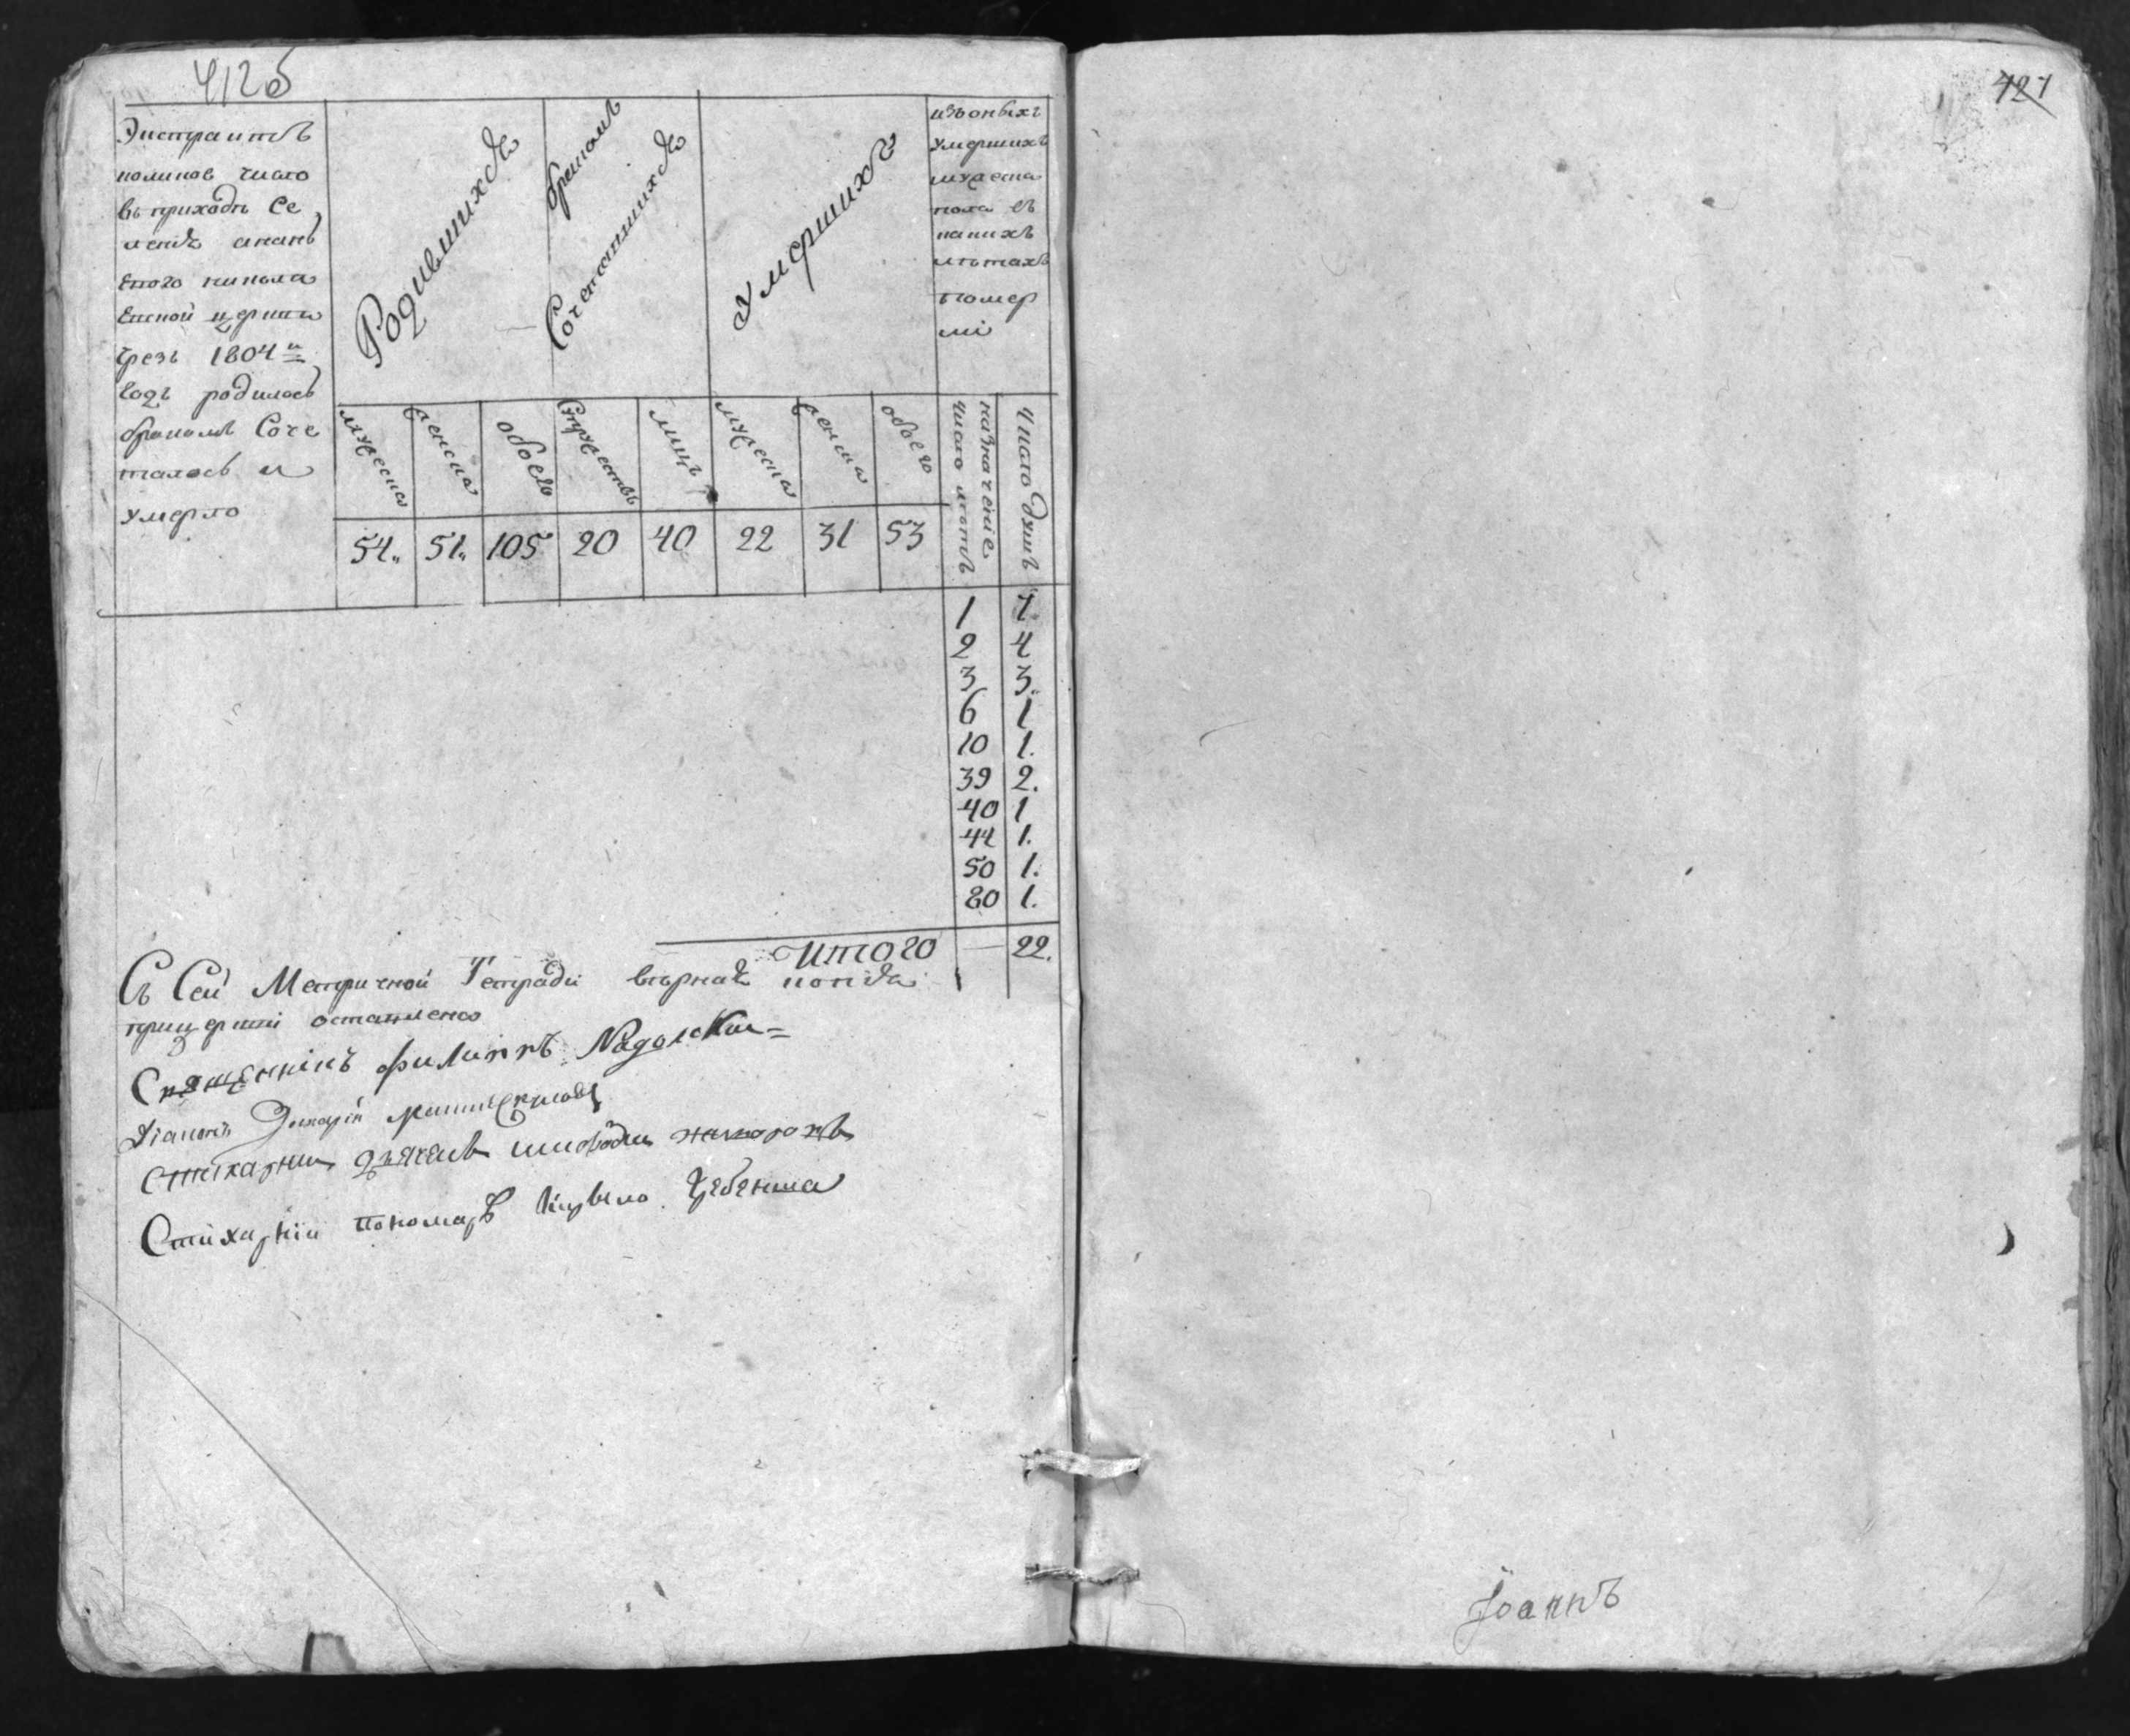 412б
Экстрактъ
коликое число
въ приходѣ Се
ленія
ского никола
евской церкви
чрезъ 1804 и
годъ родилось
бракомъ Соче
талось и
умерло
Родившихся
бракомъ
Сочетавшихся
Умершихъ
изъ оныхъ
умершихъ
мужеска
пола въ
какихъ
лѣтахъ
помер
ли
мужеска
женска
обоего
Супружествъ
лицъ
мужеска
женска
обоего
назначеніе
число лѣтъ
Число душъ
54. 51. 105 20 40 22 31 53
1 7.
2 4
3 3.
6 1
10 1.
39 2.
40 1
44 1.
50 1.
80 1.
Итого — 22.
Съ Сей Метричной Тетради вѣрная копія
при церкви оставлена
Священникъ Филиппъ
Діаконъ
Стихарни
Стихарній пономарь Кирило
421
Іоаннъ